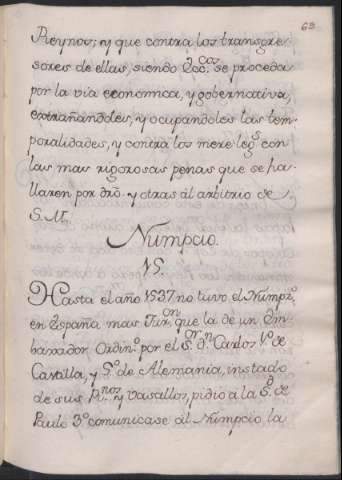 63
Reynos; y que contra los transgre-
sores de ellas, siendo Ecc.cos se proceda
por la via economica, y gobernativa,
extrañandoles, y ocupandoles las tem-
poralidades, y contra los mere leg.s con
las mas rigorosas penas que se ha-
llaren por dro. y otras al arbitrio de
S. M.
Numpcio.
15.
Hasta el año 1537 no tuvo el Numpz.o
en España mas Jur.on que la de un Em-
baxador Ordin.o por el S.or d.n Carlos V.o de
Castilla, y 5.o de Alemania, instado
de sus R.nos y vasallos, pidio a la S.d de
Paulo 3.o comunicase al Numpcio la